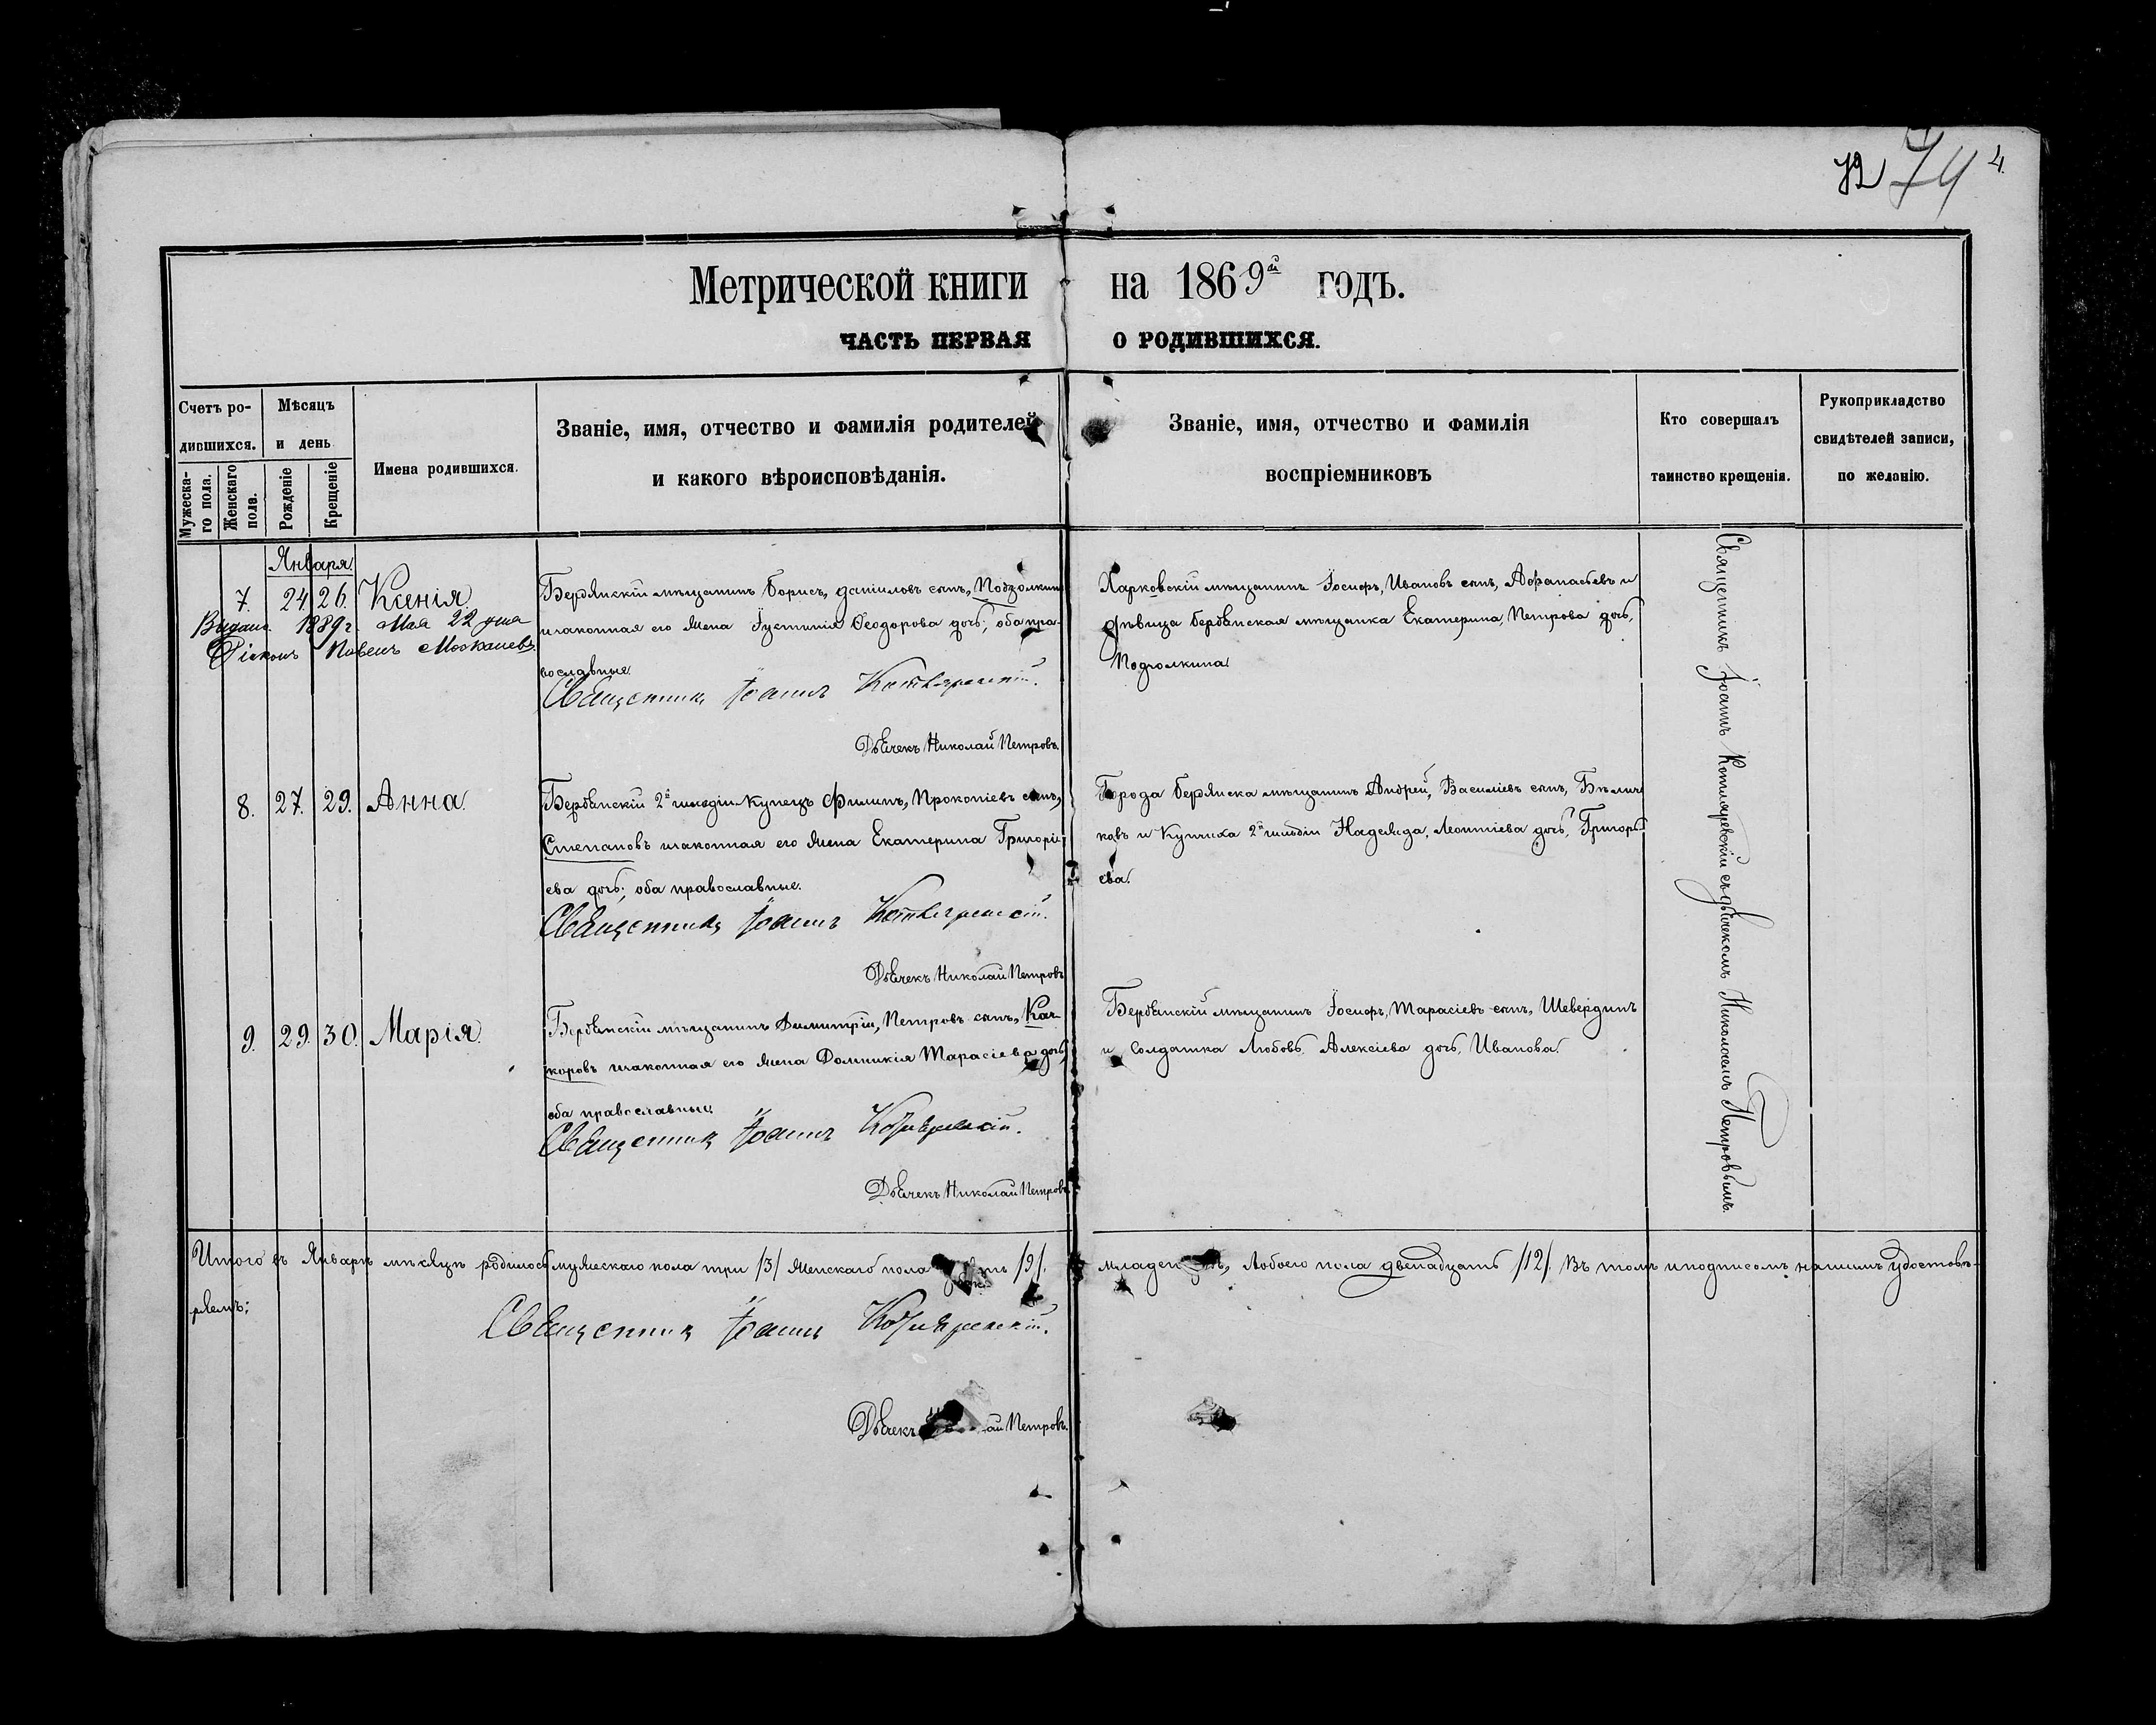 74 4.
Метрической книги на 1869й годъ.
ЧАСТЬ ПЕРВАЯ О РОДИВШИХСЯ.
Счетъ ро-
дившихся.
Мужеска-
го пола.
Женскаго
пола.
Мѣсяцъ
и день
Рожденіе
Крещеніе
Имена родившихся.
Званіе, имя, отчество и фамилія родителей
и какого вѣроисповѣданія.
Званіе, имя, отчество и фамилія
воспріемниковъ
Кто совершалъ
таинство крещенія.
Рукоприкладство
свидѣтелей записи,
по желанію.
Января
7. 24 26. Ксенія
Выдано 1889 г. Мая 22 дня
Діаконъ Павелъ
Бердянскій мѣщанинъ Борисъ, Даніиловъ сынъ, Подзолкинъ
и законная его жена Іустинія Ѳеодорова дочь; оба пра-
вославные.
Священникъ Іоаннъ Котляревскій.
Дьячекъ Николай Петровъ.
Харковскій мѣщанинъ Іосифъ, Ивановъ сынъ, Афанасьевъ и
дѣвица бердянская мѣщанка Екатерина, Петрова дочь,
Подзолкина
8. 27. 29. Анна
Бердянскій 2й гильдіи купецъ Филипъ, Прокопіевъ сынъ,
Степановъ и законная его жена Екатерина Григорі-
ева дочь; оба православные.
Священникъ Іоаннъ Котляревскій.
Дьячекъ Николай Петровъ
Города бердянска мѣщанинъ Андрей, Василіевъ сынъ, Бѣлич
ковъ и Купчиха 2й гильдіи Надежда, Леонтіева дочь, Григорь-
ева.
9. 29. 30. Марія
Бердянскій мѣщанинъ Димитрій, Петровъ сынъ, Кач-
коровъ и законная его жена Домникія Тарасіева дочь
оба православные
Священникъ Іоаннъ Котляревскій.
Дьячекъ Николай Петровъ
Бердянскій мѣщанинъ Іосифъ, Тарасіевъ сынъ, Шевердинъ
и Солдатка Любовь, Алексіева дочь, Иванова.
Священникъ Іоаннъ Котляревскій съ дьячекомъ Николаемъ Петровымъ.
Итого въ Январѣ мѣсяцѣ родилось мужескаго пола три /3/ женскаго пола /9/. Обоего пола двенадцать /12/. Въ томъ и подписомъ нашимъ удостовѣ-
ряемъ:
Священникъ Іоаннъ Котляревскій.
Дьячекъ Петровъ.